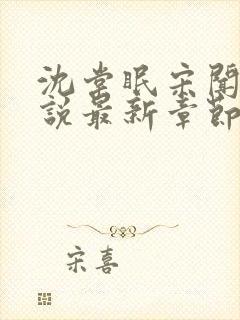 沈棠眠宋闻
説最新章節
宋喜